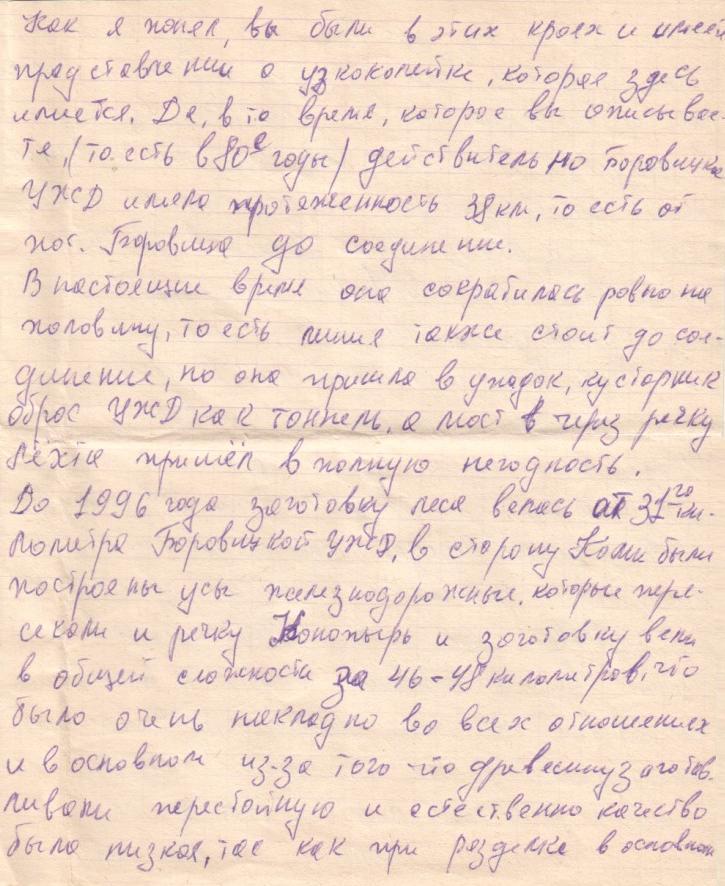 Как я понял, вы были в этих краях и имеете
представлении о узкоколейке, которая здесь
имеется. Да, в то время, которое вы описывае-
те, (то есть в 80е годы) действительно Боровицкая
УЖД имела протяженность 38 км, то есть от
пос. Боровица до соединение.
В настоящие время она сократилась ровно на
половину, то есть линия также стоит до сое-
динение, но она пришла в упадок, кустарник
оброс УЖД как тоннель, а мост в через речку
Лёхта пришёл в полную негодность.
До 1996 года заготовку леса велась от 31го ки-
лометра Боровицкой УЖД, в сторону Коми были
построены усы железнодорожные, которые пере-
секали и речку и заготовку вели
в общей сложности за 46-48 километров, что
было очень накладно во всех отношениях
и в основном из-за того что древесину заготав-
ливали перестойную и естественно качество
было низкая, так как при разделке в основном